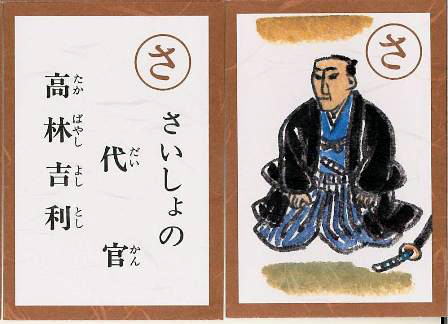 さ
さいしょの
代官
だいかん
高林吉利
たかばやしよしとし
さ